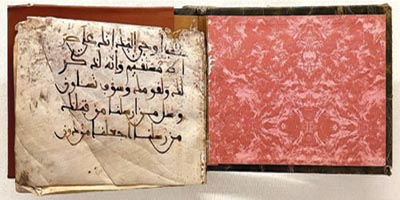 اوحي اليك انك علي
صرط مستقيم وانه لذكر
لك ولقومك وسوف تسلون
وسل من ارسلنا من قبلك
من رسلنا اجعلنا من دون